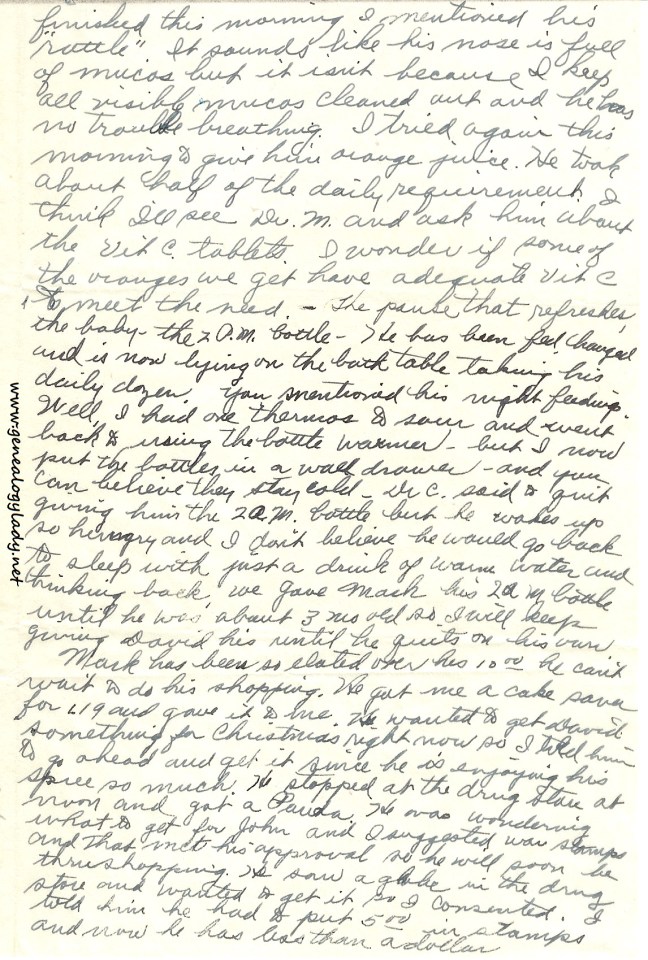 finished this morning I mentioned his
"rattle" It sounds like his nose is full
of mucos but it isn't because I keep
all visible mucos cleaned out and he has
no trouble breathing. I tried again this
morning to give him orange juice. He took
about half of the daily requirement. I
think I'll see Dr. M. and ask him about
the Vit C. tablets. I wonder if some of
the oranges we get have adequate Vit C
to meet the need. – The pause that refreshes
the baby – the 2 A.M. bottle – He has been fed, changed
and is now lying on the bath table taking his
daily dozen. You mentioned his night feeding.
Well, I had one thermos to sour and went
back to using the bottle warmer but I now
put the bottles in a wall drawer – and you
can believe they stay cold – Dr C. said to quit
giving him the 2 A.M. bottle but he wakes up
so hungry and I don't believe he would go back
to sleep with just a drink of warm water and
thinking back, we gave Mark his 2 A M bottle
until he was about 3 mo old so I will keep
giving David his until he quits on his own
Mark has been so elated over his 10 00 he can't
wait to do his shopping. He got me a cake saver
for 1.19 and gave it to me. He wanted to get David
something for Christmas right now so I told him
to go ahead and get it since he is enjoying his
spree so much. He stopped at the drug store at
noon and got a Panda. He was wondering
what to get for John and I suggested war stamps
and that met his approval so he will soon be
thru shopping. He saw a globe in the drug
store and wanted to get it so I consented. I
told him he had to put 5 00 in stamps
and now he has less than a dollar
www.genealogylady.net